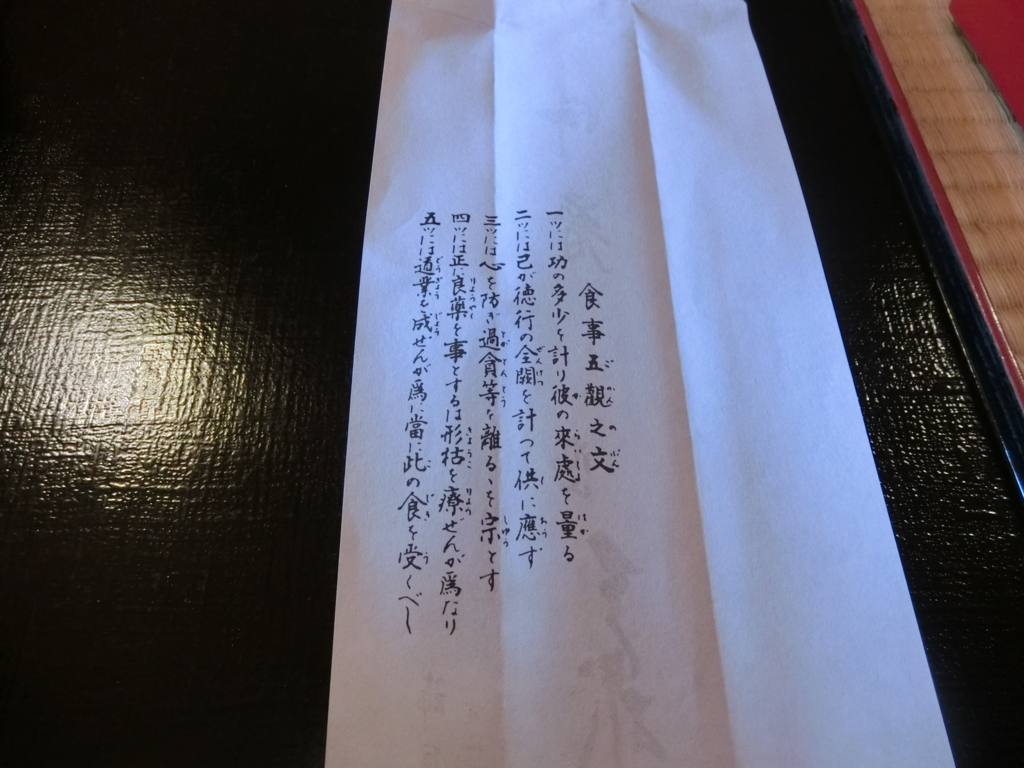 食事五觀之文
一ッには功の多少を計り彼の來處を量る
二ッには己が徳行の全闕を計って供に應ず
三ッには心を防ぎ過貪等を離るゝを宗とす
四ッには正に良藥を事とするは形枯を療せんが爲なり
五ッには道業を成ぜんが爲に當に此の食を受くべし